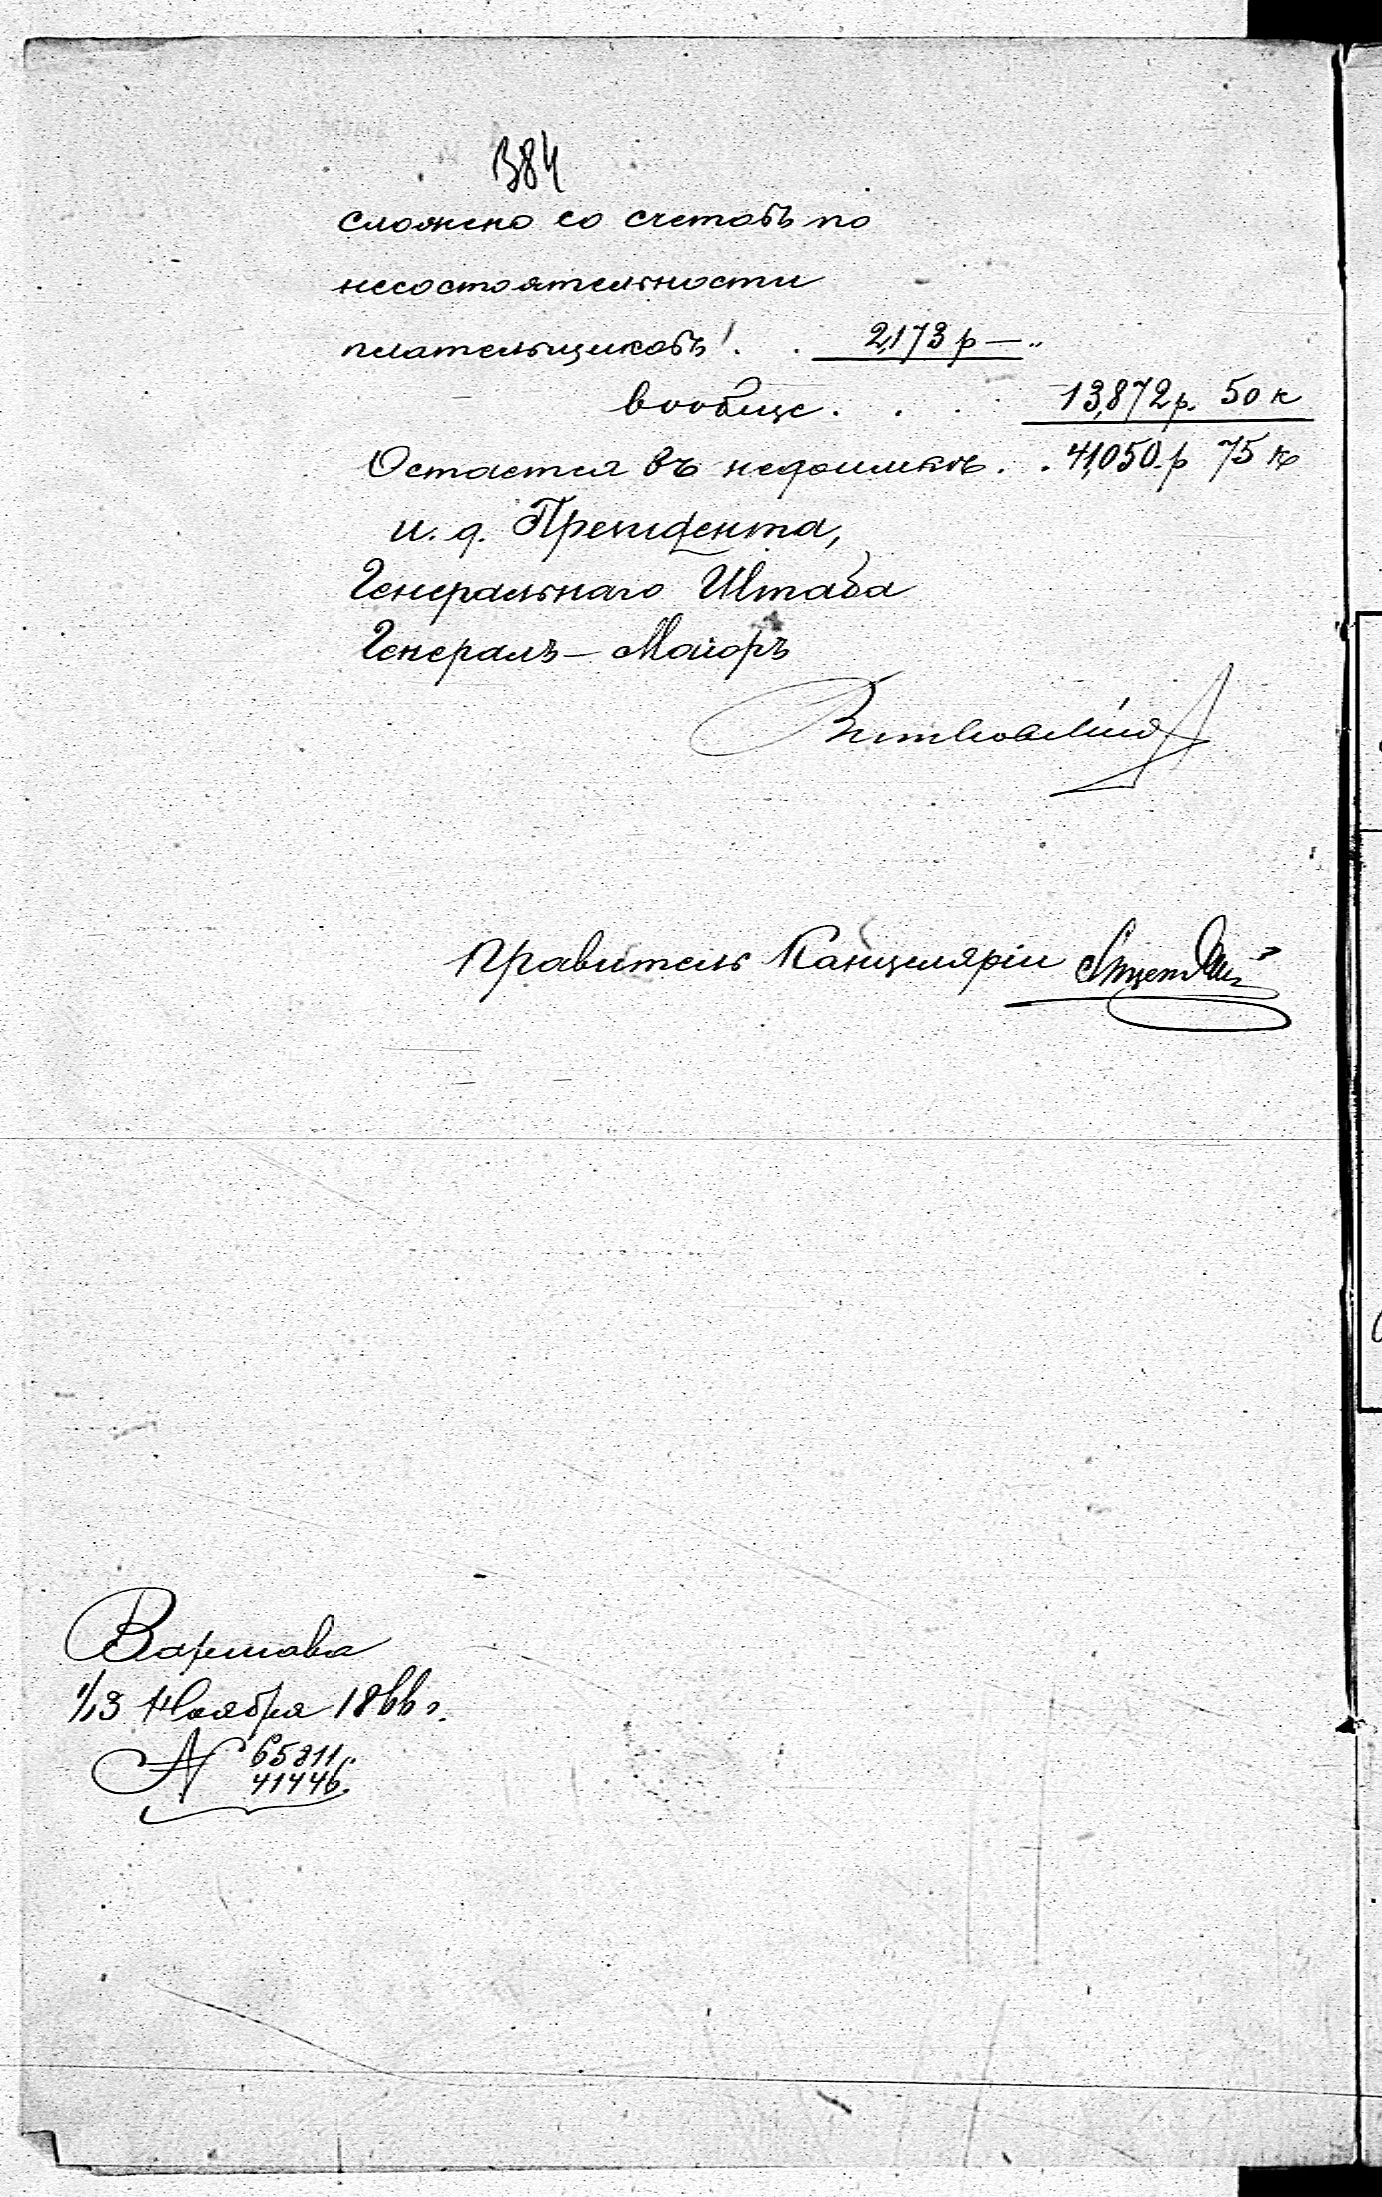 384
сложено со счетовъ по
несостоятельности
плательщиковъ . . 2,173 р — "
вообще . . . 13,872 р. 50 к
Остается въ недоимкѣ . . 41,050 р 75 к
и. д. Президента,
Генеральнаго Штаба
Генералъ-Маіоръ
Витковскій
Правитель Канцеляріи
Варшава
1/13 Ноября 1866 г.
N 65811
41446.